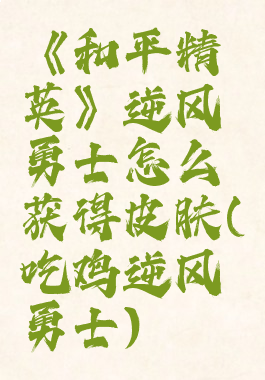 《和平精
英》逆风
勇士怎么
获得皮肤(
吃鸡逆风
勇士)